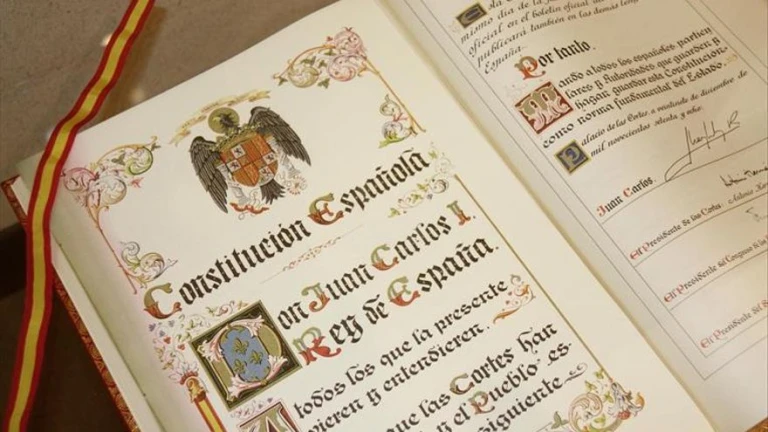 Constitución Española
Don Juan Carlos I.
Rey de España.
A todos los que la presente
vieren y entendieren.
que las Cortes han
y el Pueblo es-
siguiente
mismo día de la
oficial en el boletín oficial
publicará también en las demás leng
España.
Por tanto.
Mando a todos los españoles particu
lares y Autoridades que guarden y
hagan guardar esta Constitución
como norma fundamental del Estado.
Palacio de las Cortes a veintisiete de diciembre de
mil novecientos setenta y ocho.
Juan Carlos.
El Presidente de las Cortes: Antonio Her
El Presidente del Congreso de los
El Presidente del S